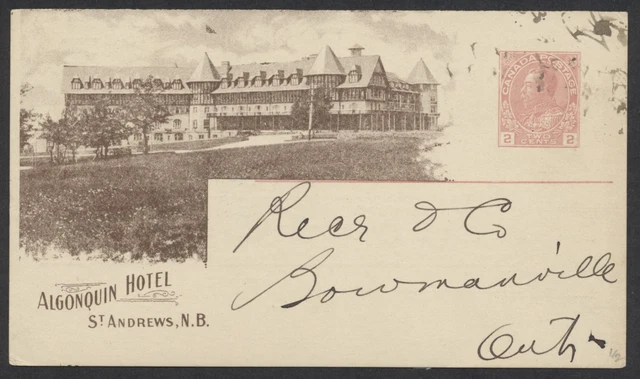 CANADA POSTAGE
2 2
CENTS
& Co
Bowmanville
Ont.
ALGONQUIN HOTEL
ST ANDREWS, N.B.